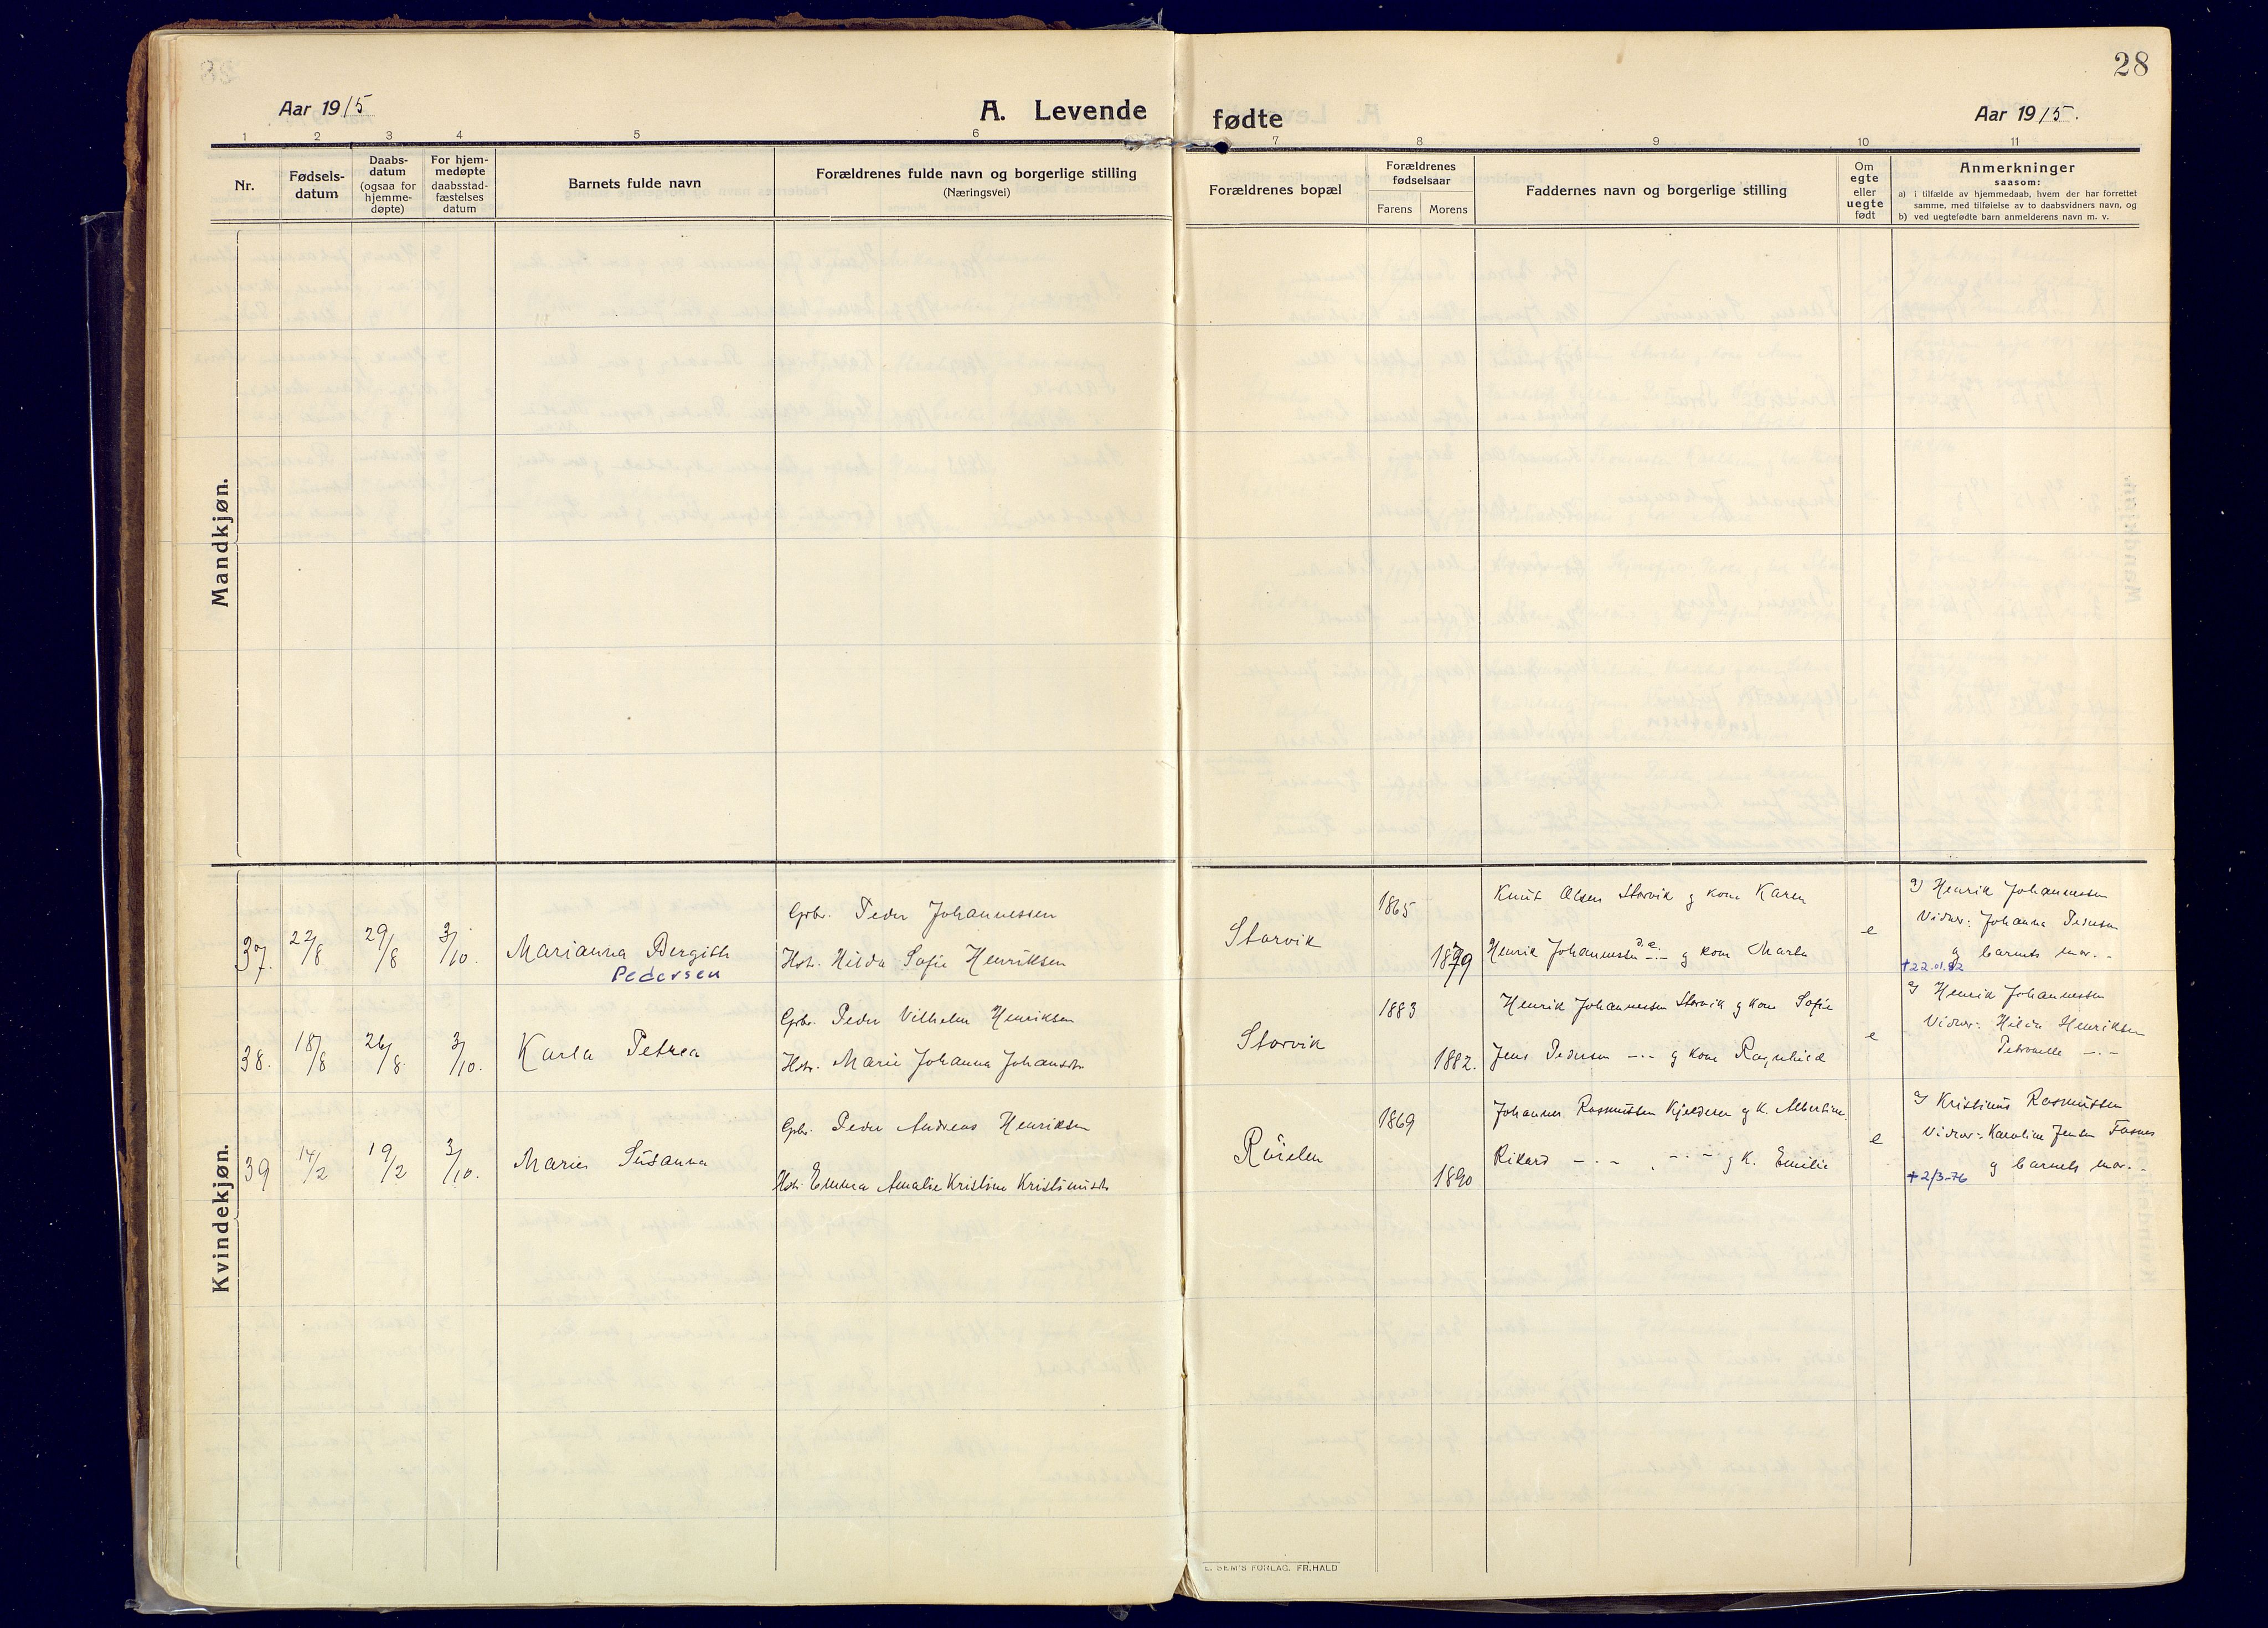 28
Aar 1915
A. Levende
fødte
Aar 1915.
1 2 3 4 5 6 7 8 9 10 11
Nr.
Fødsels-
datum
Daabs-
datum
(ogsaa for
hjemme-
døpte)
For hjem-
medøpte
daabsstad-
fæstelses
datum
Barnets fulde navn
Forældrenes fulde navn og borgerlige stilling
(Næringsvei)
Forældrenes bopæl
Forældrenes
fødselsaar
Farens Morens
Faddernes navn og borgerlige stilling
Om
egte
eller
uegte
født
Anmerkninger
saasom:
a) i tilfælde av hjemmedaab, hvem der har forrettet
samme, med tilføielse av to daabsvidners navn, og
b) ved uegtefødte barn anmelderens navn m. v.
Mandkjøn.
Kvindekjøn.
37. 22/8 29/8 3/10. Marianna Bergith
Pedersen
Gbr. Peder Johannessen
Hstr. Hilda Sofie Henriksen
Storvik
1865
1879
Knut Olsen Storvik g kone Karen
Henrik Johannessen d.e. -.- g kone Marta
e
a) Henrik Johannessen
Vidner: Johanna Pedersen
g barnets mor.-
+22.01.82
38. 18/8 26/8 3/10. Karla Petrea
Gbr. Peder Vilhelm Henriksen
Hstr. Marie Johanna Johansdtr
Storvik
1883
1882.
Henrik Johannessen Storvik g kone Sofie
Jens Pedersen -.- g kone Ragnhild
e
a) Henrik Johannessen
Vidner: Hilda Henriksen
Petronelle -.-
39 14/2 19/2 3/10. Marie Susanna
Gbr. Peder Andreas Henriksen
Hstr. Emma Amalie Kristine Kristinusdtr
1869
1890
Johannes Rasmussen g K. Albertine
Rikard -.- , -.- g K. Emilie
e
a) Kristinus Rasmussen
Vidner: Karoline Jensen
g barnets mor.-
+2/3-76
E. SEM'S FORLAG. FR.HALD